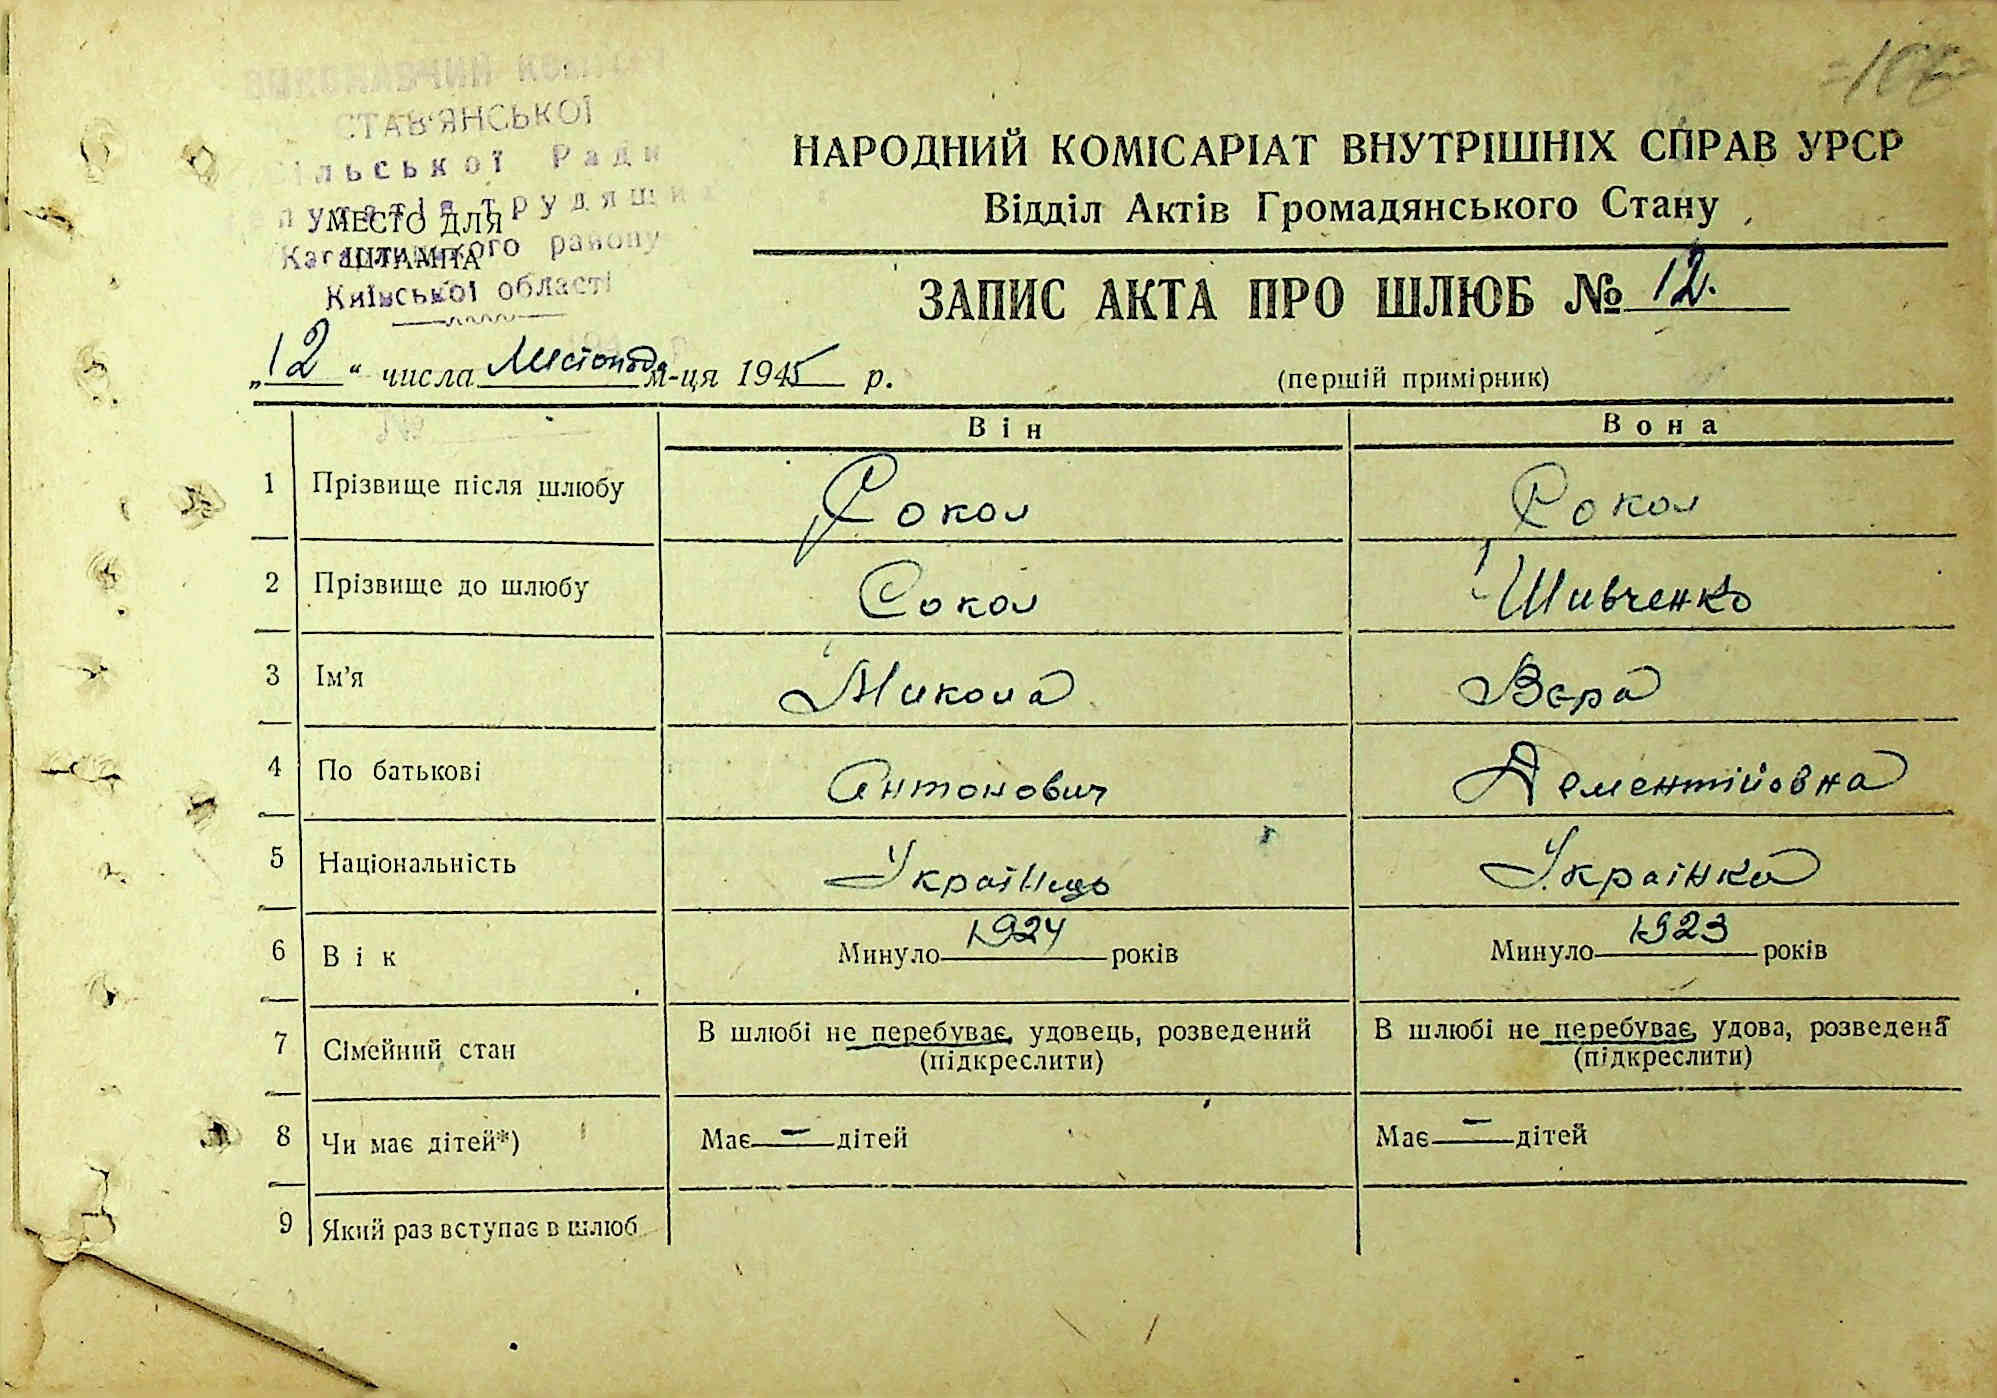 ВИКОНАВЧИЙ КОМІТЕТ
СТАВ'ЯНСЬКОЇ
Сільської Ради
депутатів трудящих
Кагарлицького району
Київської області
МЕСТО ДЛЯ
ШТАМПА
НАРОДНИЙ КОМІСАРІАТ ВНУТРІШНІХ СПРАВ УРСР
Відділ Актів Громадянського Стану
ЗАПИС АКТА ПРО ШЛЮБ № 12.
„12“ числа Листопада м-ця 1945 р.
(перший примірник)
Він Вона
1 Прізвище після шлюбу Сокол Сокол
2 Прізвище до шлюбу Сокол Шивченко
3 Ім'я Микола Вєра
4 По батькові Антонович Дементійовна
5 Національність Українець Українка
6 Вік Минуло 1924 років Минуло 1923 років
7 Сімейний стан В шлюбі не перебуває, удовець, розведений В шлюбі не перебуває, удова, розведена
(підкреслити) (підкреслити)
8 Чи має дітей*) Має — дітей Має — дітей
9 Який раз вступає в шлюб